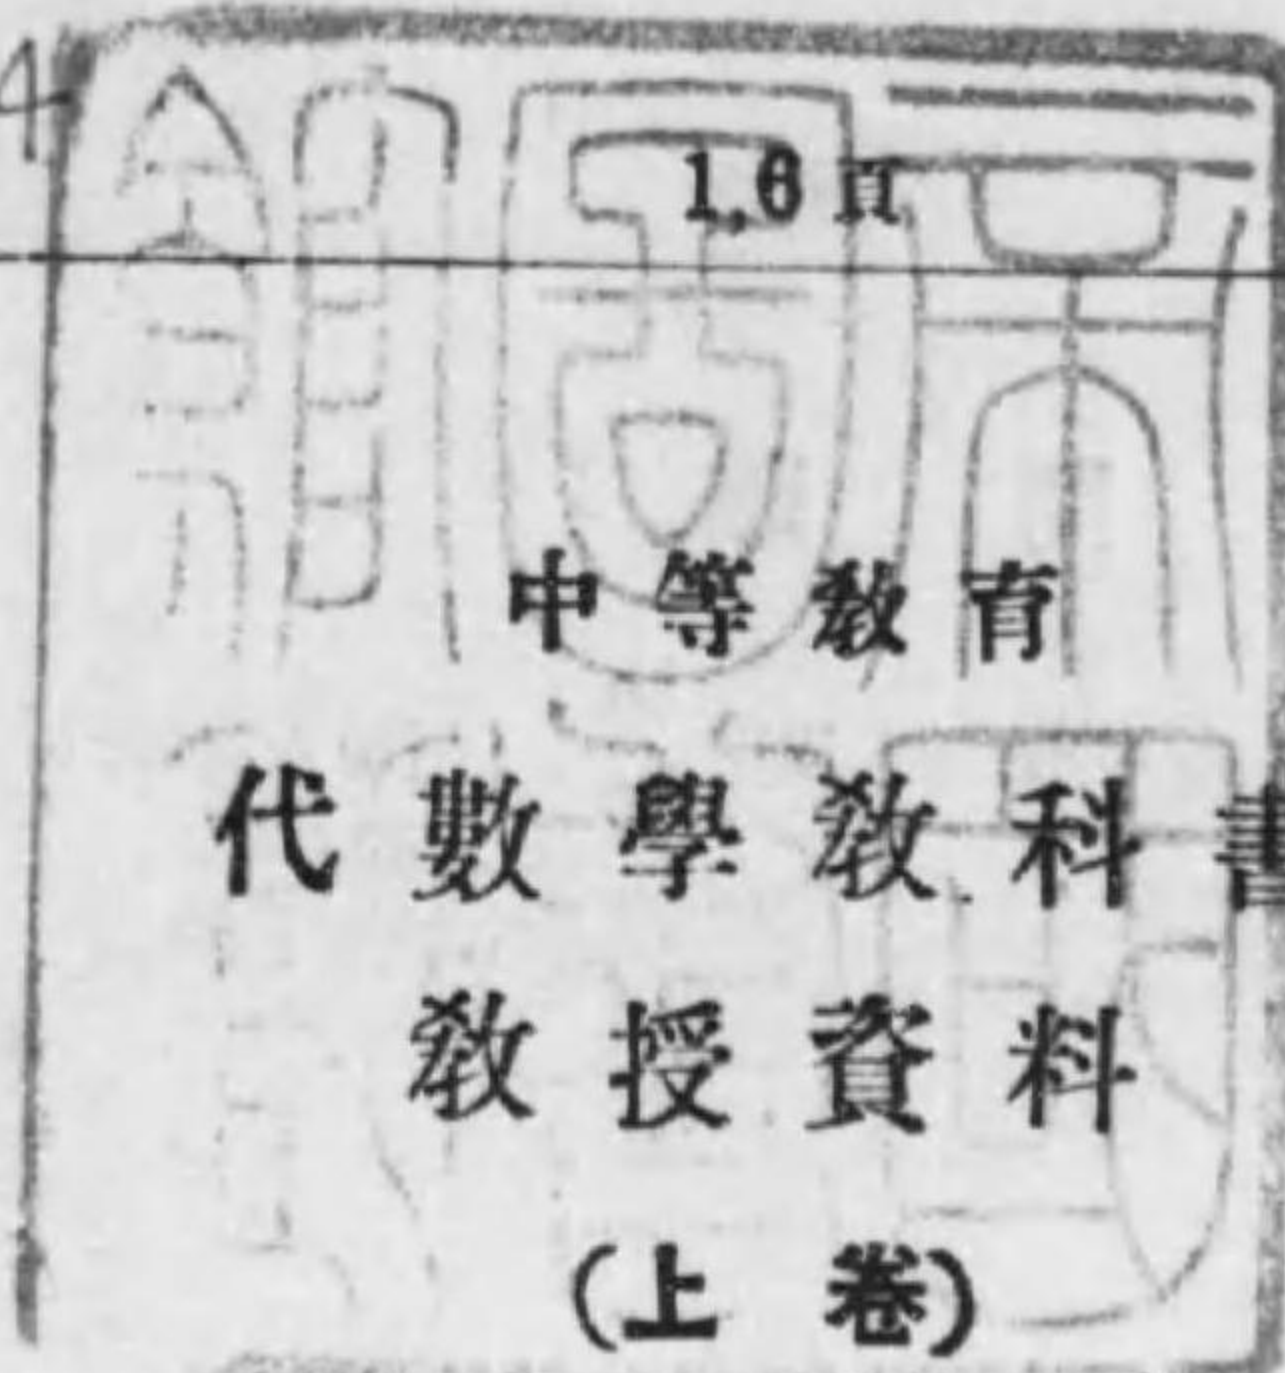 1,6 頁
中等教育
代數學教科書
教授資料
(上卷)